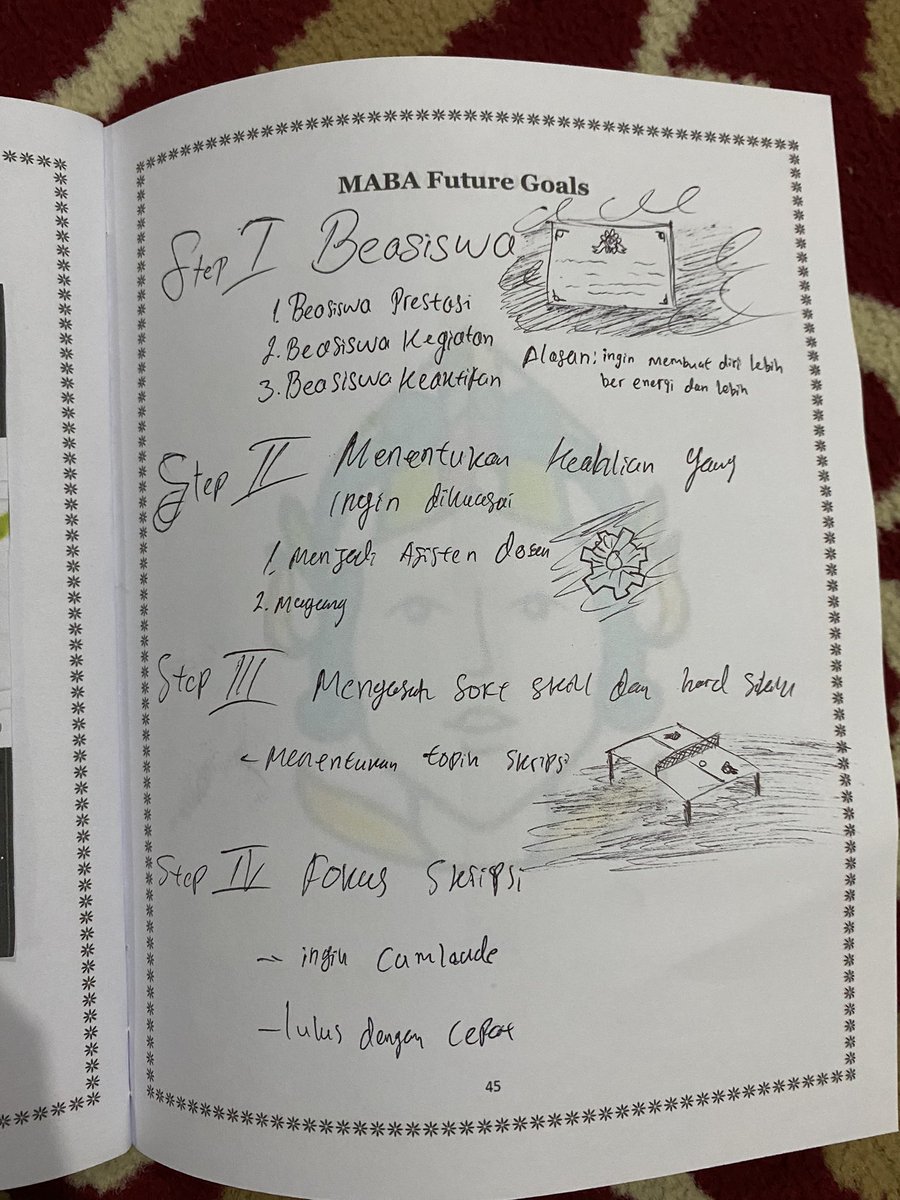 MABA Future Goals
Step I Beasiswa
1. Beasiswa Prestasi
2. Beasiswa Kegiatan
3. Beasiswa Keaktifan
Alasan: ingin membuat diri lebih
ber energi dan lebih
Step II Menentukan Keahlian yang
ingin dikuasai
1. Menjadi Asisten dosen
2. Magang
Step III Mengasah Soft skill dan hard
- Menentukan topik skripsi
Step IV Fokus Skripsi
- ingin Cumlaude
- lulus dengan cepat
45